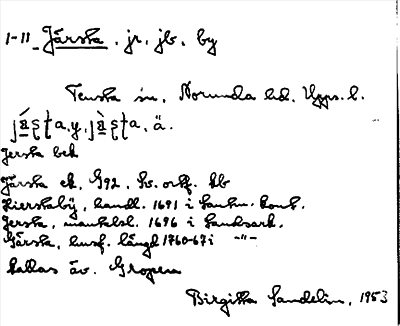 1-11 Järska, jr, jb, by
Tensta sn, Norunda hd, Upps. l.
jä́ʂʈa, y, jä̀ʂʈa, ä.
Jerska bek
Järska ek, G92, Sv. ortf. kb
Hierskaby, handl. 1691 i Lantm. kont.
Jerska, mantalsl. 1696 i Landsark.
Gärska, husf. längd 1760-67 i -"-
kallas äv. Gropen
Birgitta Sandelin, 1953